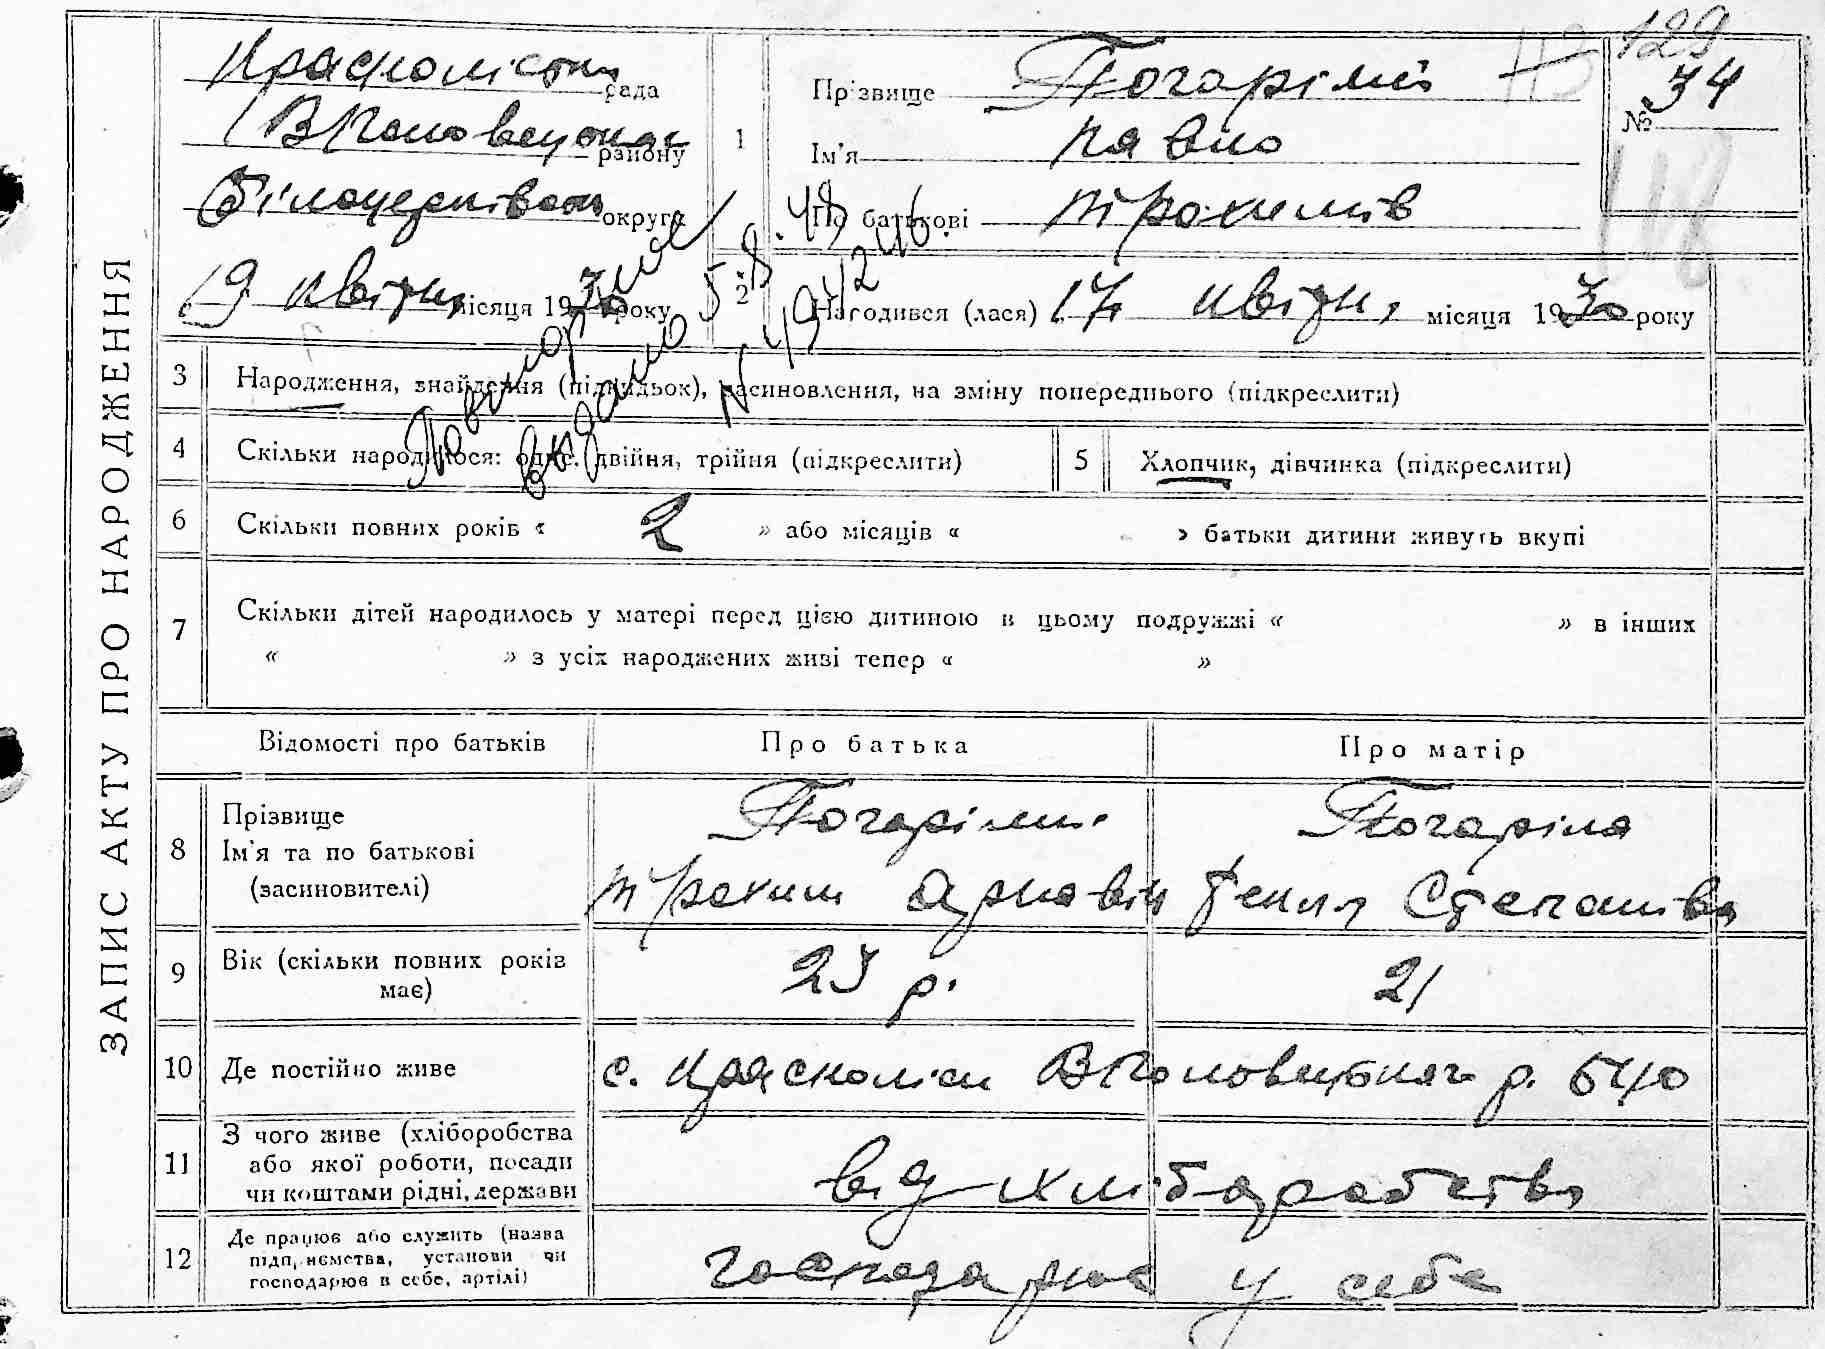 ЗАПИС АКТУ ПРО НАРОДЖЕННЯ
рада
району
Білоцерківськ округа
19 квітн місяця 1930 року
1
Прізвище Погорілий
Ім'я Павло
По батькові Трохимів
129
№ 34
118
2 Народився (лася) 17 квітн, місяця 1930 року
Повторне
видано 5.8.48
3 Народження, знайдення (підкидьок), засиновлення, на зміну попереднього (підкреслити)
4 Скільки народилося: одне, двійня, трійня (підкреслити)
5 Хлопчик, дівчинка (підкреслити)
6 Скільки повних років « 2 » або місяців « » батьки дитини живуть вкупі
7 Скільки дітей народилось у матері перед цією дитиною в цьому подружжі « » в інших
« » з усіх народжених живі тепер « »
Відомості про батьків
Про батька
Про матір
8 Прізвище
Ім'я та по батькові
(засиновителі)
Погорілий
Трохим
Погоріла
Текля Степанівна
9 Вік (скільки повних років
має)
р.
21
10 Де постійно живе
с. р. БЦО
11 З чого живе (хліборобства
або якої роботи, посади
чи коштами рідні, держави
від хліборобства
12 Де працює або служить (назва
підприємства, установи чи
господарює в себе, артілі)
господарює у себе